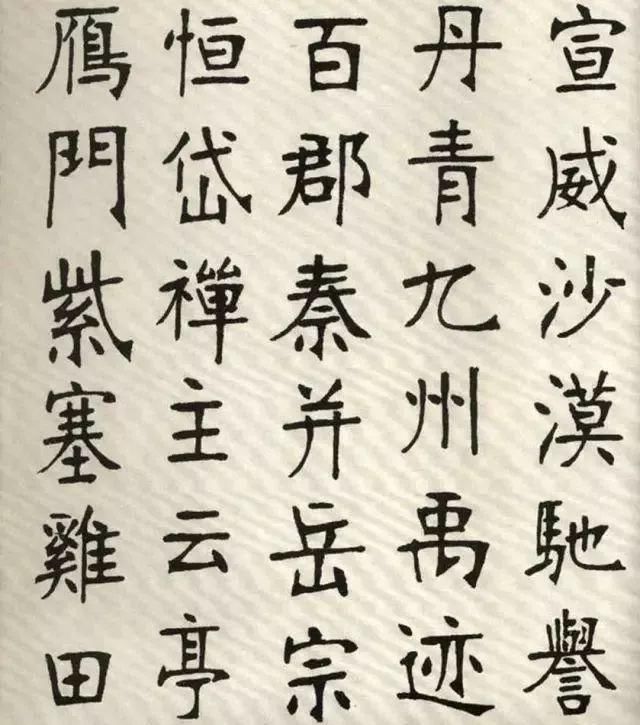 宣威沙漠馳譽
丹青九州禹迹
百郡秦并岳宗
恒岱禪主云亭
鴈門紫塞雞田